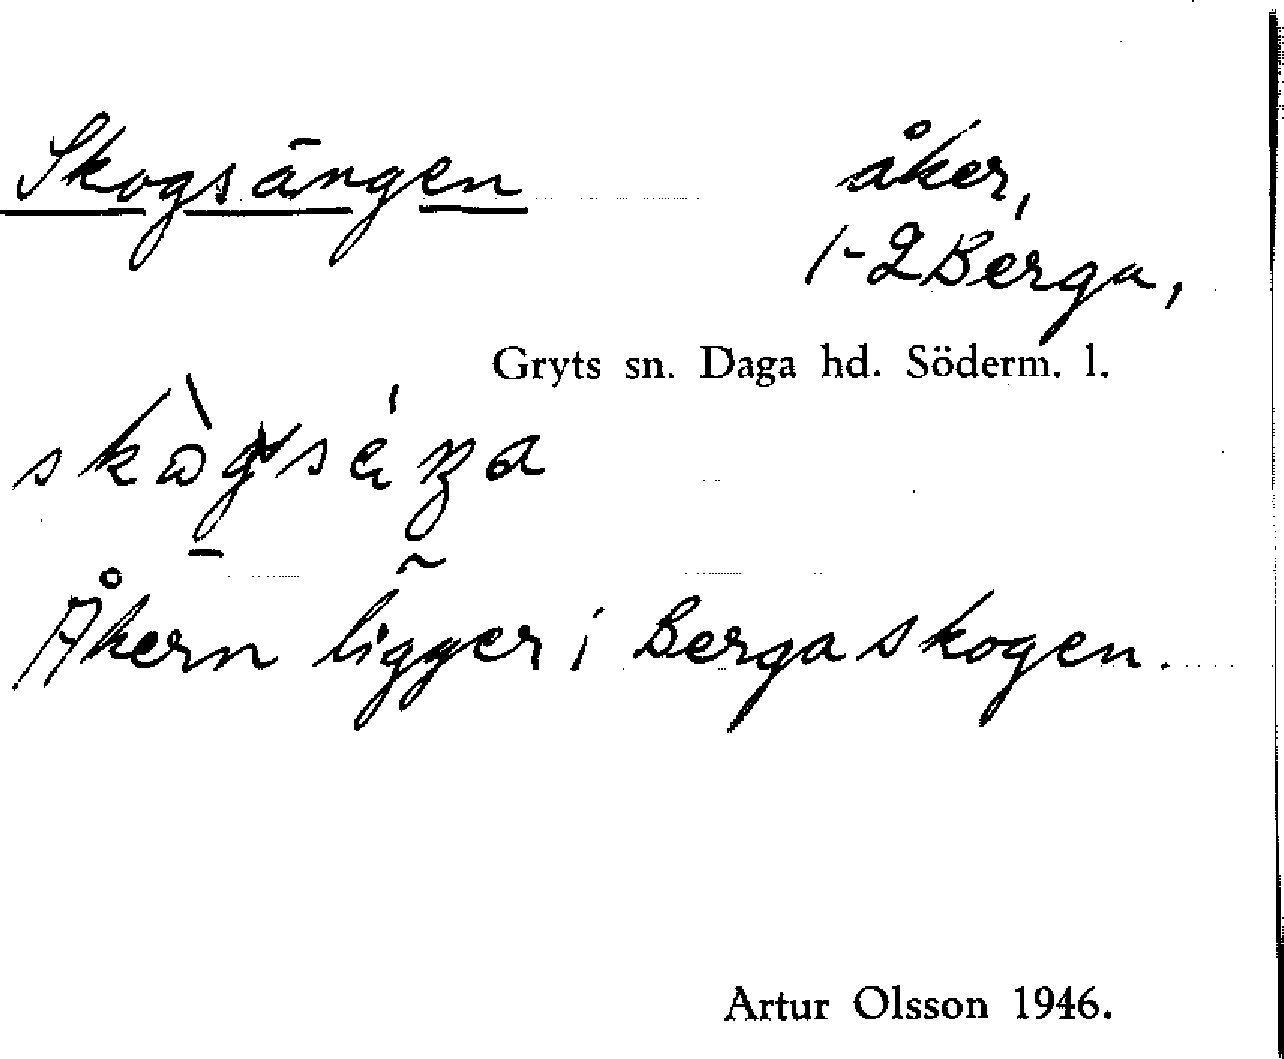 Skogsängen åker,
1-2 Berga,
Gryts sn. Daga hd. Söderm. l.
Åkern ligger i Bergaskogen.
Artur Olsson 1946.